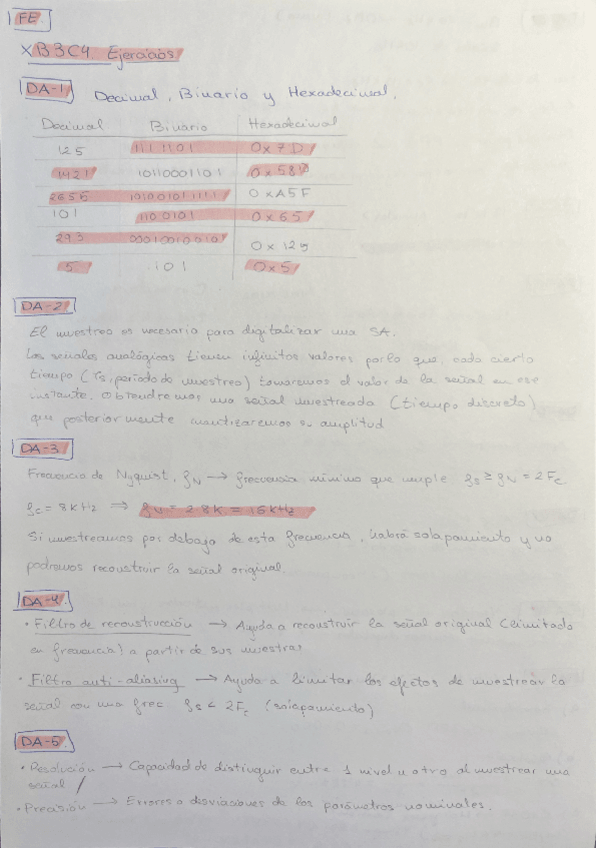 FE
X B3C4 Ejercicios
DA-1 Decimal, Binario y Hexadecimal.
Decimal Binario Hexadecimal
125 1111101 0x7D
1421 10110001101 0x58
2655 101001011111 0xA5F
101 1100101 0x65
293 000100100101 0x125
5 101 0x5
DA-2
El muestreo es necesario para digitalizar una SA.
Las señales analógicas tienen infinitos valores por lo que, cada cierto
tiempo (Ts, período de muestreo) tomaremos el valor de la señal en ese
instante. Obtendremos una señal muestreada (tiempo discreto)
que posteriormente cuantizaremos su amplitud
DA-3
Frecuencia de Nyquist, fN → frecuencia mínima que cumple fs ≥ fN = 2Fc
fc = 8kHz ⇒ fN = 2·8k = 16kHz
Si muestreamos por debajo de esta frecuencia, habrá solapamiento y no
podremos reconstruir la señal original.
DA-4
• Filtro de reconstrucción → Ayuda a reconstruir la señal original (limitada
en frecuencia) a partir de sus muestras
• Filtro anti-aliasing → Ayuda a limitar los efectos de muestrear la
señal con una frec fs < 2Fc (solapamiento)
DA-5
• Resolución → Capacidad de distinguir entre 1 nivel u otro al muestrear una
señal /
• Precisión → Errores o desviaciones de los parámetros nominales.